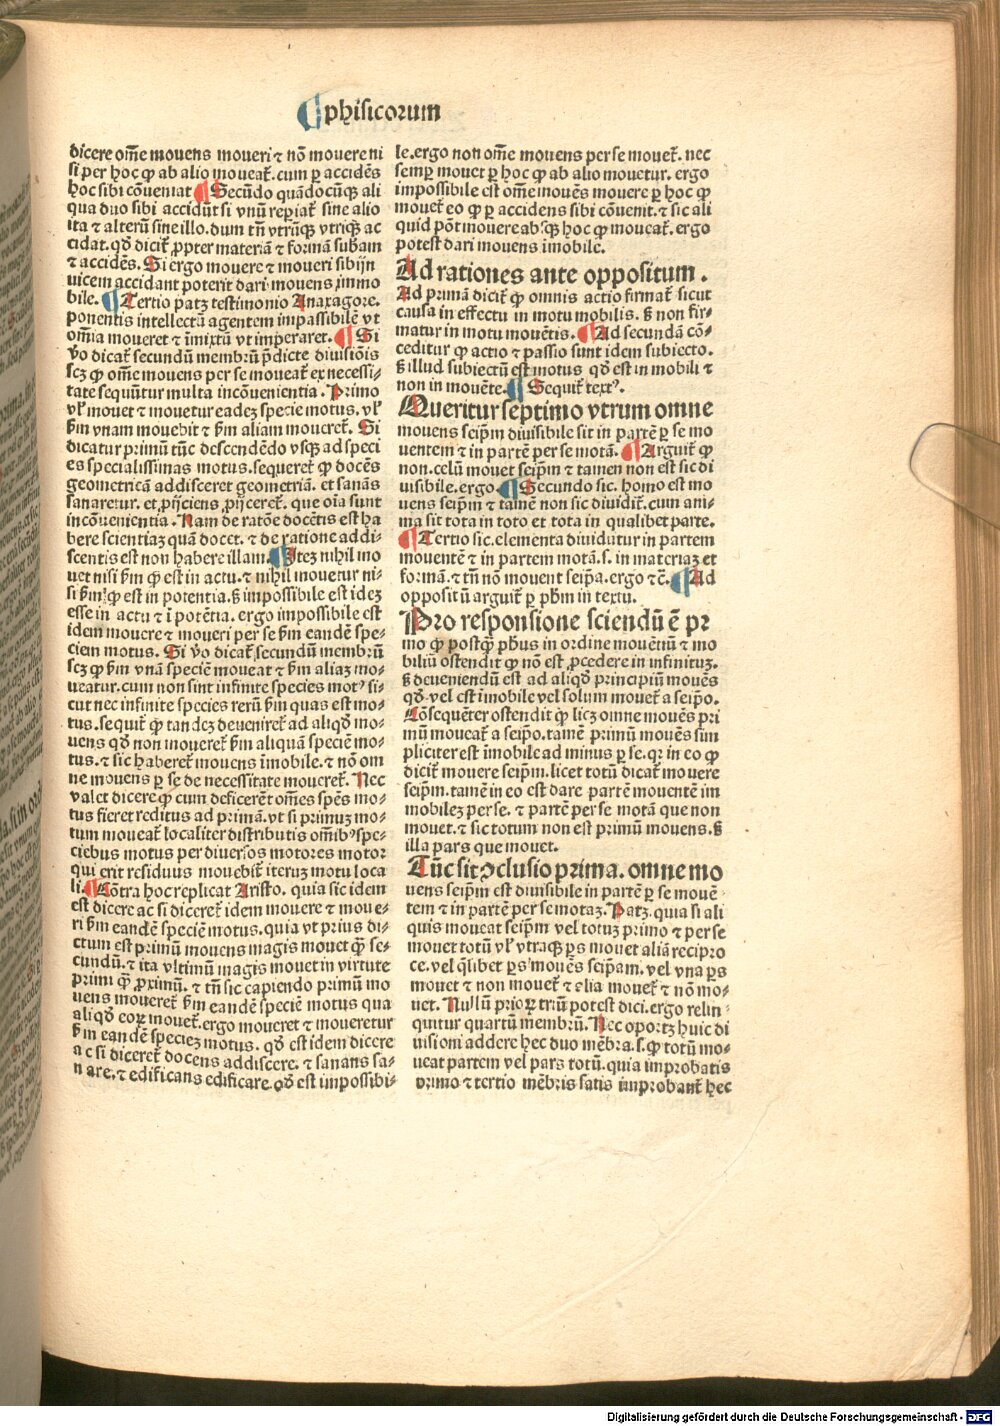 ¶ phisicorum
dicere om̄e mouens moueri ⁊ nō mouere ni
si per hoc ꝙ ab alio moueat̃. cum ꝑ accidēs
hoc sibi cōueniat ¶ Secūdo quādocūqꝫ ali
qua duo sibi accidūt si vnū reꝑiat̃ sine alio
ita ⁊ alterū sine illo. dum tn̄ vtrūqꝫ vtriqꝫ ac
cidat. qđ dicit̃ ꝓpter materiā ⁊ formā subam
⁊ accidēs. Si ergo mouere ⁊ moueri sibijn
uicem accidant poterit dari mouens immo
bile. ¶ Tertio patꝫ testimonio Anaxagore.
ponentis intellectū agentem impassibilē vt
om̄ia moueret ⁊ īmixtū vt imperaret. ¶ Si
v̊o dicat̃ secundū membrū p̄dicte diuisiōis
scꝫ ꝙ om̄e mouens per se moueat̃ ex necessi⸗
tate sequūtur multa incōuenientia. Primo
vl̃ mouet ⁊ mouetur eadeꝫ specie motus. vl̃
ẜm vnam mouebit ⁊ ẜm aliam mouceret̃. Si
dicatur primū tūc descendēdo vsqꝫ ad speci
es specialissimas motus. sequeret̃ ꝙ docēs
geometricā addisceret geometriā. et sanās
sanaretur. et ꝓijciens ꝓijceret̃. que oīa sunt
incōuenientia. Nam de ratōe docētis est ha
bere scientiaꝫ quā docet. ⁊ de ratione addi⸗
scentis est non habere illam. ¶ Iteꝫ nihil mo
uet nisi ẜm ꝙ est in actu. ⁊ nihil mouetur ni⸗
si ẜm ꝙ est in potentia. ß impossibile est ideꝫ
esse in actu ⁊ ī potētia. ergo impossibile est
idem mouere ⁊ moueri per se ẜm eandē spe⸗
ciem motus. Si v̊o dicat̃ secundū membrū
scꝫ ꝙ ẜm vnā speciē moueat ⁊ ẜm aliaꝫ mo⸗
ueatur. cum non sint infinite species motꝰ si⸗
cut nec infinite species rerū ẜm quas est mo⸗
tus. sequit̃ ꝙ tandeꝫ deueniret̃ ad aliqđ mo⸗
uens qđ non moueret̃ ẜm aliquā speciē mo⸗
tus. ⁊ sic haberet̃ mouens īmobile. ⁊ nō om
ne mouens ꝑ se de necessitate moueret̃. Nec
valet dicere ꝙ cum deficerēt om̄es spēs mo⸗
tus fieret reditus ad primā. vt si primuꝫ mo⸗
tum moueat̃ localiter distributis om̄ibꝰ spe⸗
ciebus motus per diuersos motores motor
qui erit residuus mouebit̃ iteruꝫ motu loca
li. ¶ Cōtra hoc replicat Aristo. quia sic idem
est dicere ac si diceret̃ idem mouere ⁊ moue⸗
ri ẜm eandē speciē motus. quia vt prius di⸗
ctum est primū mouens magis mouet ꝙ̃ se⸗
cundū. ⁊ ita vltimū magis mouet in virtute
primi ꝙ̃ ꝓximū. ⁊ tn̄ sic capiendo primū mo
uens moueret̃ ẜm eandē speciē motus qua
aliqđ eoꝝ mouet̃. ergo moueret ⁊ moueretur
ẜm eandē specieꝫ motus. qđ est idem dicere
ac si diceret̃ docens addiscere. ⁊ sanans sa⸗
nare. ⁊ edificans edificare. qđ est impossibi⸗
le. ergo non om̄e mouens per se mouet̃. nec
semꝑ mouet ꝑ hoc ꝙ ab alio mouetur. ergo
impossibile est om̄e mouēs mouere ꝑ hoc ꝙ
mouet̃ eo ꝙ ꝑ accidens sibi cōuenit. ⁊ sic ali
quid pōt mouere absqꝫ hoc ꝙ moueat̃. ergo
potest dari mouens imobile.
Ad rationes ante oppositum.
Ad primā dicit̃ ꝙ omnis actio firmat̃ sicut
causa in effectu in motu mobilis. ß non fir⸗
matur in motu mouētis. ¶ Ad secundā cō⸗
ceditur ꝙ actio ⁊ passio sunt idem subiecto.
ß illud subiectū est motus qđ est in mobili ⁊
non in mouēte. ¶ Sequit̃ textꝰ.
Queritur septimo vtrum omne
mouens seip̄m diuisibile sit in partē ꝑ se mo
uentem ⁊ in partē per se motā. ¶ Arguit̃ ꝙ
non. celū mouet seip̄m ⁊ tamen non est sic di
uisibile. ergo ¶ Secundo sic. homo est mo
uens seip̄m ⁊ tamē non sic diuidit̃. cum ani⸗
ma sit tota in toto et tota in qualibet parte.
¶ Tertio sic. elementa diuidūtur in partem
mouentē ⁊ in partem motā. s. in materiaꝫ et
formā. ⁊ tn̄ nō mouent seip̄a. ergo ⁊c̄. ¶ Ad
oppositū arguit̃ ꝑ pħm in textu.
Pro responsione sciendū ē pr
mo ꝙ postꝙ̃ pħus in ordine mouētiū ⁊ mo
biliū ostendit ꝙ nō est ꝓcedere in infinituꝫ.
ß deueniendū est ad aliqđ principiū mouēs
qđ vel est īmobile vel solum mouet̃ a seip̄o.
Cōsequēter ostendit ꝙ licꝫ omne mouēs pri
mū moueat̃ a seip̄o. tamē primū mouēs sim
pliciter est īmobile ad minus ꝑ se. qꝛ in eo ꝙ
dicit̃ mouere seip̄m. licet totū dicat̃ mouere
seip̄m. tamē in eo est dare partē mouentē im
mobileꝫ per se. ⁊ partē per se motā que non
mouet. ⁊ sic totum non est primū mouens. ß
illa pars que mouet.
Tūc sit ꝯclusio prima. omne mo
uens seip̄m est diuisibile in partē ꝑ se mouē⸗
tem ⁊ in partē per se motaꝫ. Patꝫ. quia si ali
quis moueat seip̄m vel totuꝫ primo ⁊ per se
mouet totū vl̃ vtraqꝫ ꝑs mouet aliā recipro
ce. vel q̄libet ꝑs mouēs seip̄am. vel vna ꝑs
mouet ⁊ non mouet̃ ⁊ alia mouet̃ ⁊ nō mo⸗
uet. Nullū prioꝝ triū potest dici. ergo relin⸗
quitur quartū membrū. Nec oportꝫ huic di
uisioni addere hec duo mēbra. s. ꝙ totū mo⸗
ueat partem vel pars totū. quia improbatis
primo ⁊ tertio mēbris satis improbant̃ hec
Digitalisierung gefördert durch die Deutsche Forschungsgemeinschaft - DFG